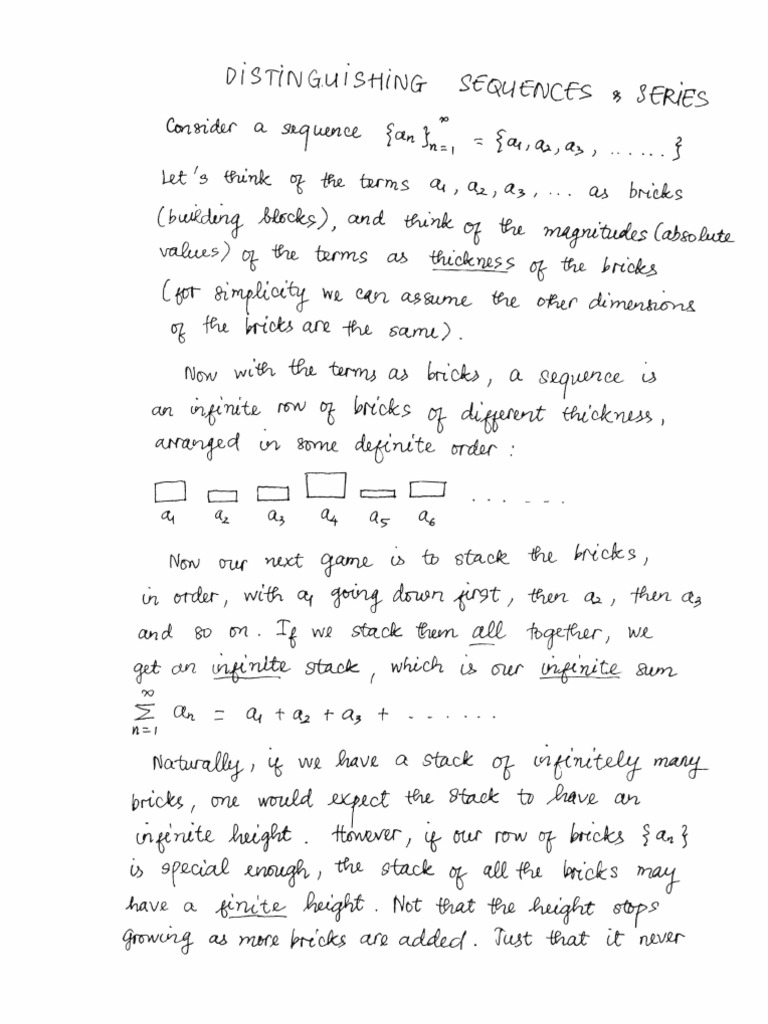 DISTINGUISHING SEQUENCES & SERIES
Consider a sequence {an}∞n=1 = {a1, a2, a3, ......}
Let's think of the terms a1, a2, a3, ... as bricks
(building blocks), and think of the magnitudes (absolute
values) of the terms as thickness of the bricks
(for simplicity we can assume the other dimensions
of the bricks are the same).
Now with the terms as bricks, a sequence is
an infinite row of bricks of different thickness,
arranged in some definite order :
a1 a2 a3 a4 a5 a6 .......
Now our next game is to stack the bricks,
in order, with a1 going down first, then a2, then a3
and so on. If we stack them all together, we
get an infinite stack, which is our infinite sum
∞∑n=1 an = a1 + a2 + a3 + .......
Naturally, if we have a stack of infinitely many
bricks, one would expect the stack to have an
infinite height. However, if our row of bricks {an}
is special enough, the stack of all the bricks may
have a finite height. Not that the height stops
growing as more bricks are added. Just that it never